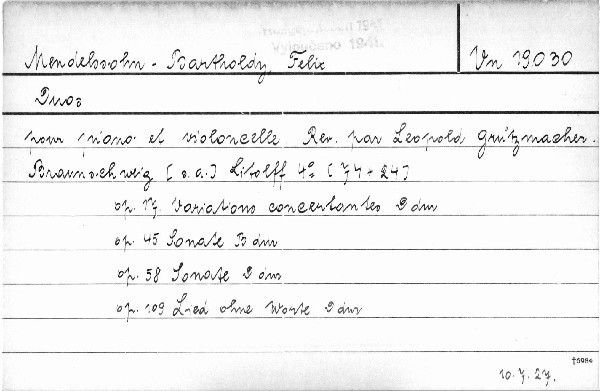 Vypůjčeno 1941.
Mendelssohn - Bartholdy, Felix
Vn 19.030
Duos
pour piano et violoncelle Rev. par Leopold Grützmacher.
Braunschweig [s.a.] Litolff 4° [74+24]
op. 17. Variations concertantes D dur
op. 45 Sonate B dur
op. 58 Sonate D dur
op. 109 Lied ohne Worte D dur
10.7.27.